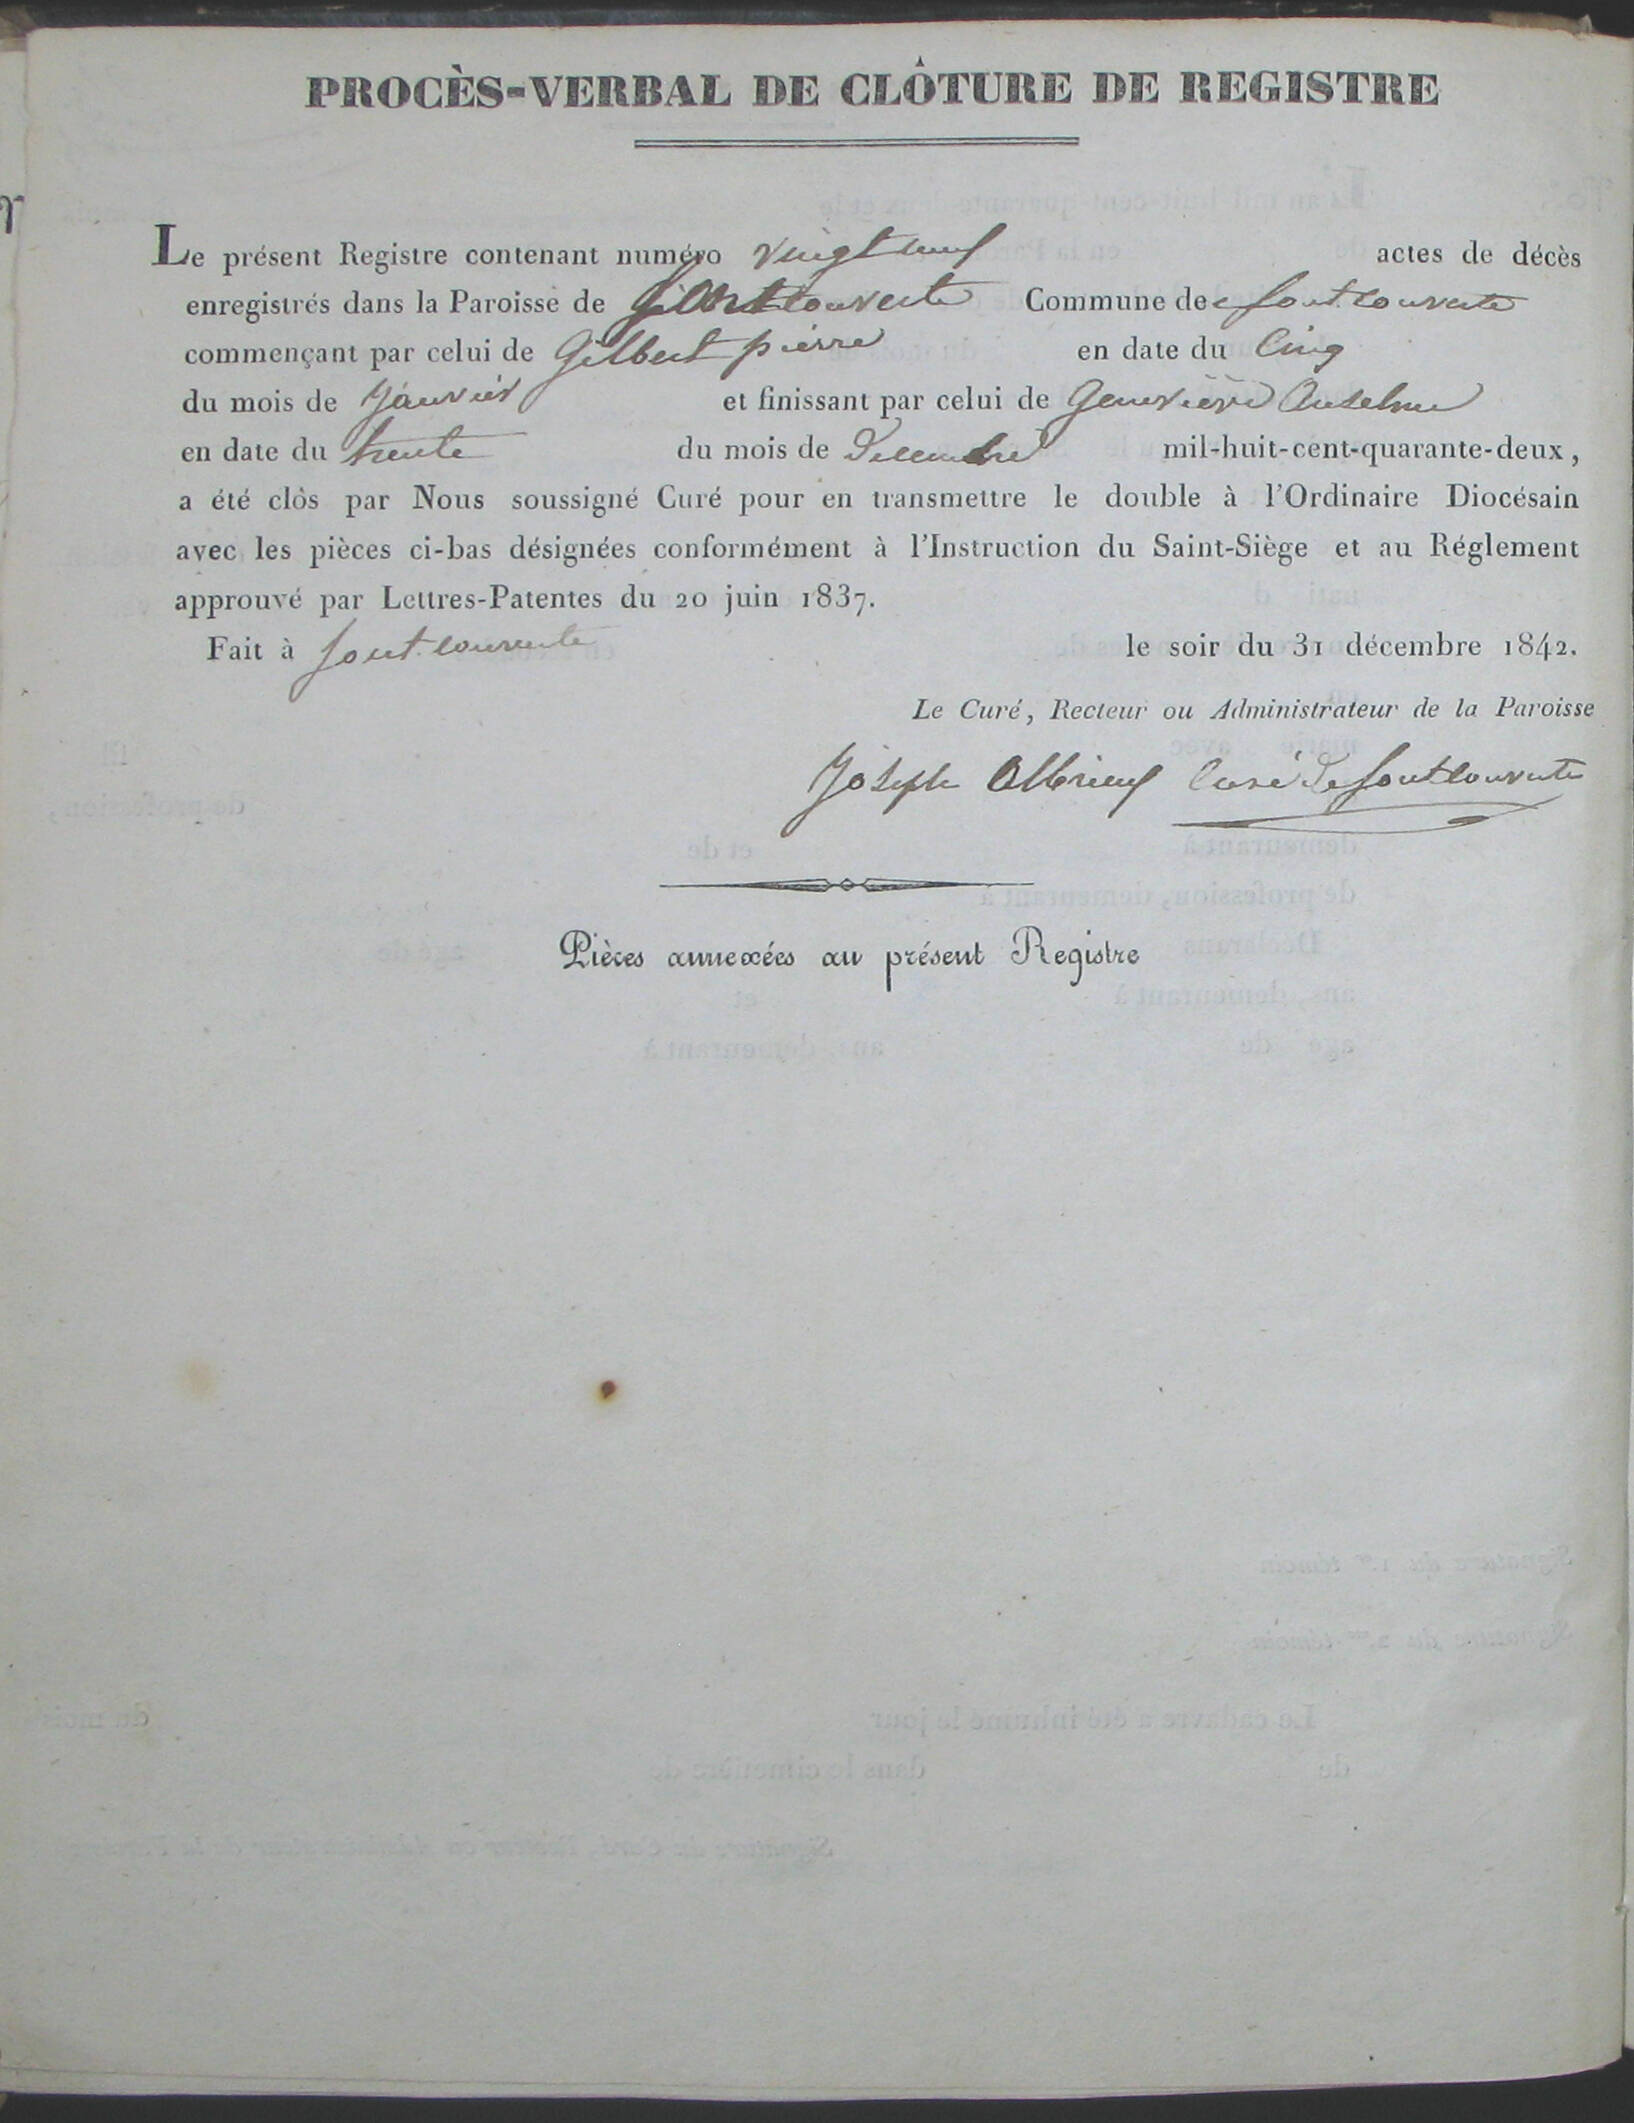 PROCÈS-VERBAL DE CLÔTURE DE REGISTRE
Le présent Registre contenant numéro vingt neuf actes de décès
enregistrés dans la Paroisse de fontcouverte Commune de fontcouverte
commençant par celui de Gilbert pierre en date du Cinq
du mois de Janvier et finissant par celui de Geneviève Anselme
en date du trente du mois de Decembre mil-huit-cent-quarante-deux,
a été clos par Nous soussigné Curé pour en transmettre le double à l'Ordinaire Diocésain
avec les pièces ci-bas désignées conformément à l'Instruction du Saint-Siège et au Réglement
approuvé par Lettres-Patentes du 20 juin 1837.
Fait à fontcouverte le soir du 31 décembre 1842.
Le Curé, Recteur ou Administrateur de la Paroisse
Joseph Curé de fontcouverte
Pièces annexées au présent Registre